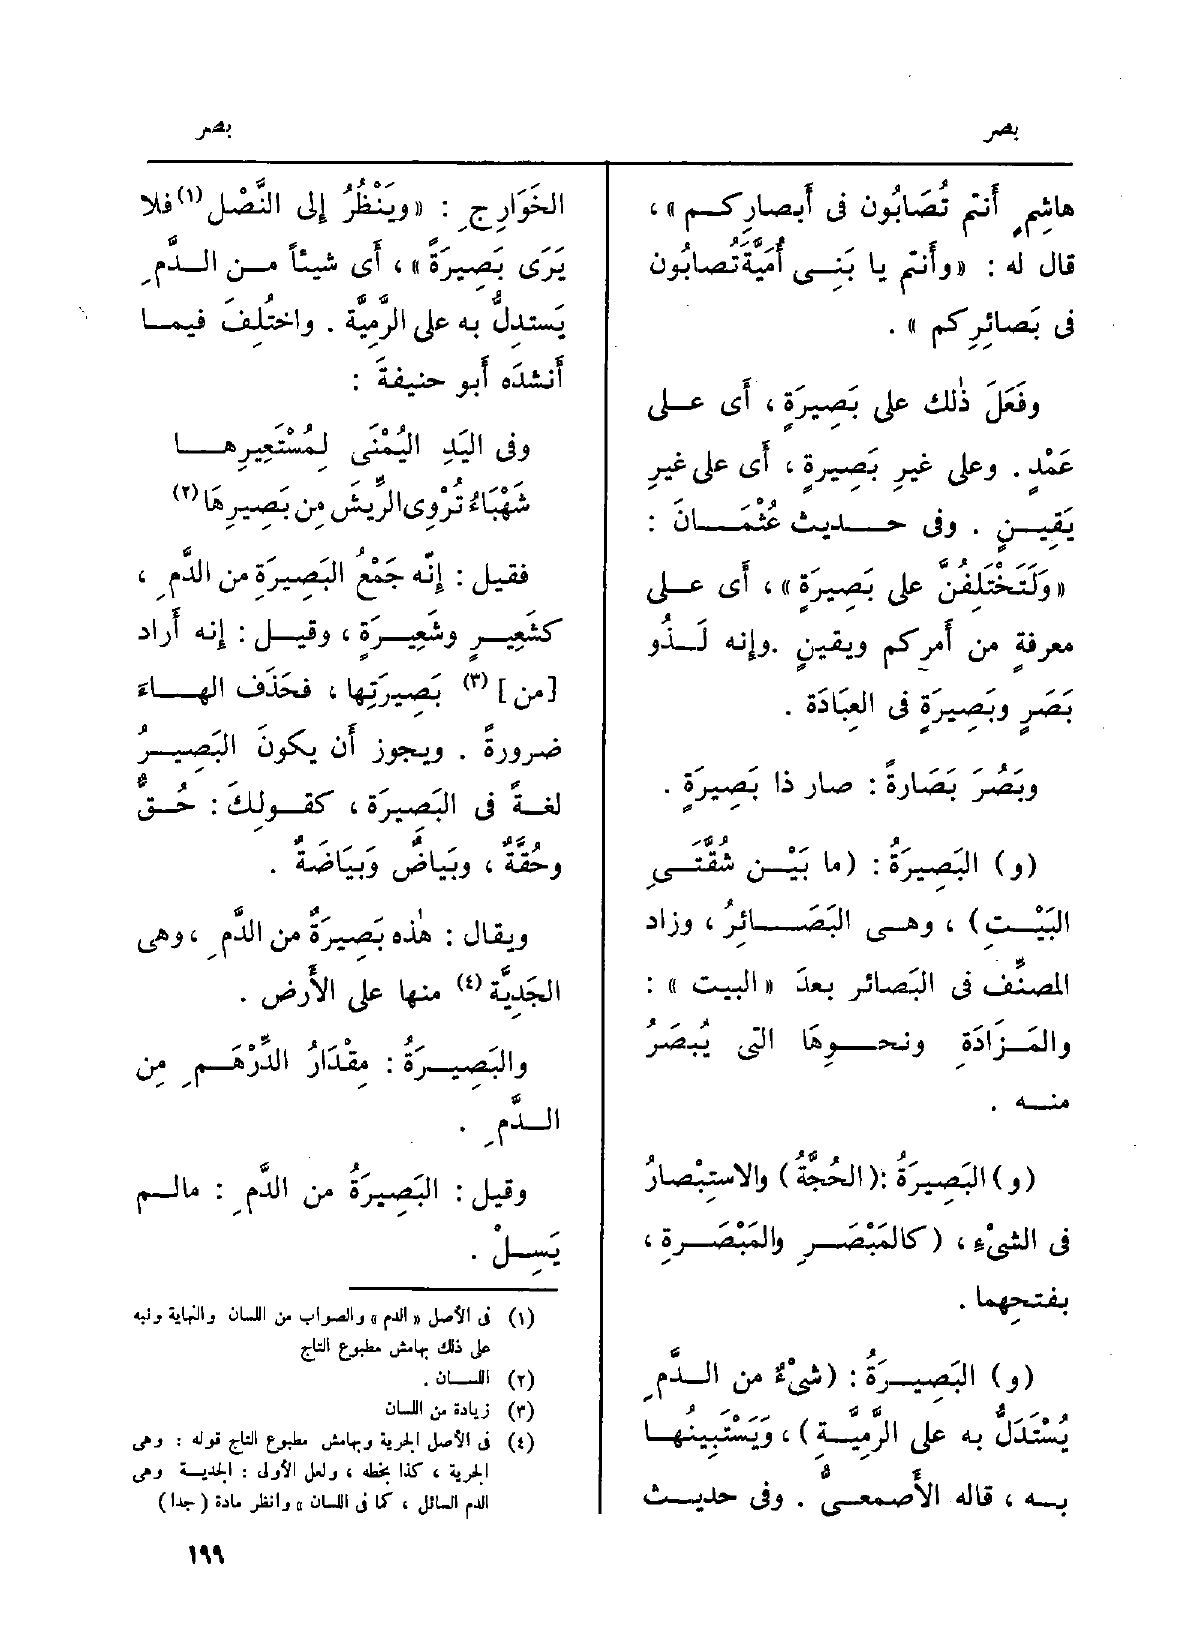 بصر
بصر
هاشِمٍ أَنتم تُصَابُون فى أَبصارِكم » ،
قال له : «وأَنتم يا بَنِى أُمَيَّةَ تُصابُون
فى بَصائِرِكم » .
وفَعَلَ ذٰلك على بَصِيرَةٍ ، أَى على
عَمْدٍ . وعلى غيرِ بَصِيرةٍ ، أَى على غيرِ
يَقِينٍ . وفى حديث عُثْمَانَ :
«ولَتَخْتَلِفُنَّ على بَصِيرَةٍ » ، أَى على
معرفةٍ من أَمرِكم ويقينٍ .وإنه لَذُو
بَصَرٍ وبَصِيرَةٍ فى العِبَادَة .
وبَصُرَ بَصَارةً : صار ذا بَصِيرَةٍ .
(و) البَصِيرَةُ : (ما بَيْن شُقَّتَىِ
البَيْتِ) ، وهى البَصَائِرُ ، وزاد
المصنِّف فى البَصائر بعدَ «البيت » :
والمَزَادَةِ ونحوِهَا التى يُبصَرُ
منه .
(و) البَصِيرَةُ :(الحُجَّةُ) والاستِبْصارُ
فى الشىْءِ ، (كالمَبْصَرِ والمَبْصَرةِ ،
بفتحِهما .
(و) البَصِيرَةُ : (شىْءٌ من الدَّمِ
يُسْتَدَلُّ به على الرَّمِيَّةِ) ، ويَسْتَبِينُها
به ، قاله الأَصمعىُّ . وفى حديث
الخَوَارِجِ : «ويَنْظُرُ إلى النَّصْل (١) فلا
يَرَى بَصِيرَةً » ، أَى شيئاً من الدَّمِ
يَستدِلُّ به على الرَّمِيَّة . واختُلِفَ فيما
أَنشدَه أَبو حنيفةَ :
وفى اليَدِ اليُمْنَى لِمُسْتَعِيرِها
شَهْبَاءُ تُرْوِى الرِّيشَ مِن بَصِيرِهَا (٢)
فقيل : إنّه جَمْعُ البَصِيرَةِ من الدَّمِ ،
كشَعِيرٍ وشَعِيرَةٍ ، وقيل : إنه أَراد
[من] (٣) بَصِيرَتِها ، فحَذَف الهاءَ
ضرورةً . ويجوز أَن يكونَ البَصِيرُ
لغةً فى البَصِيرَة ، كقولكَ : حُقٌّ
وحُقَّةٌ ، وبَياضٌ وَبَيَاضَةٌ .
ويقال : هٰذه بَصِيرَةٌ من الدَّمِ ، وهى
الجَدِيَّة (٤) منها على الأَرض .
والبَصِيرَةُ : مِقْدَارُ الدِّرْهَمِ مِن
الدَّمِ .
وقيل : البَصِيرَةُ من الدَّمِ : مالم
يَسِلْ .
(١) فى الأصل « الدم » والصواب من اللسان والنهاية ونبه
على ذلك بهامش مطبوع التاج
(٢) اللسان .
(٣) زيادة من اللسان
(٤) فى الأصل الجرية وبهامش مطبوع التاج قوله : وهى
الجرية ، كذا بخطه ، ولعل الأولى : الجدية وهى
الدم السائل ، كما فى اللسان » وانظر مادة (جدا)
١٩٩